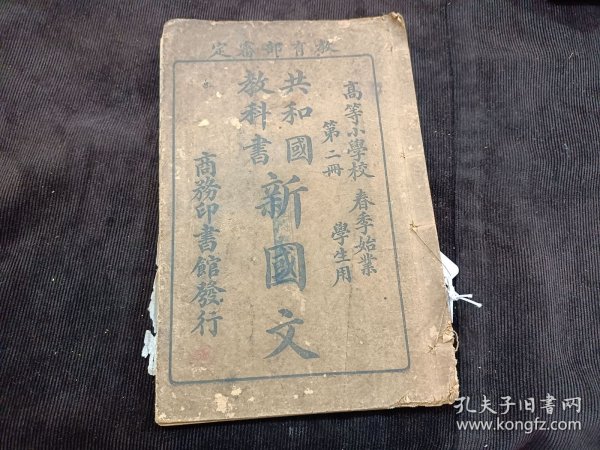 教育部審定
高等小學校 春季始業
第二冊 學生用
共和國
教科書
新國文
商務印書館發行
孔夫子旧书网
www.kongfz.com